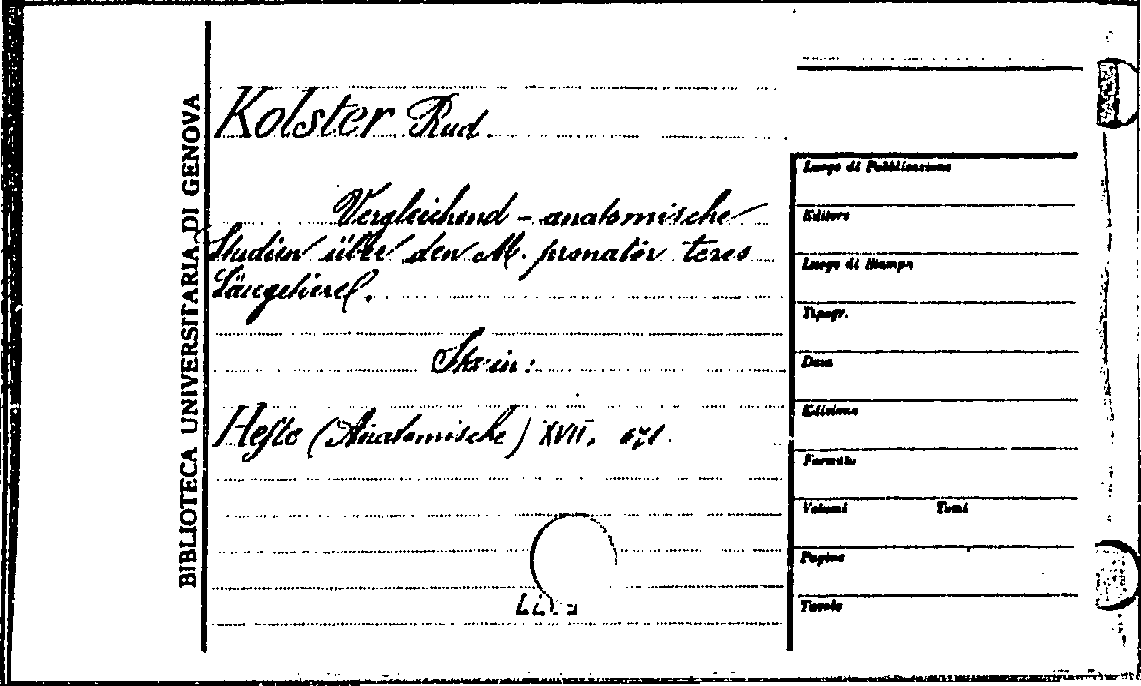 BIBLIOTECA UNIVERSITARIA DI GENOVA
Kolster Rud.
Vergleichend - anatomische
Studien über den M. pronator teres
Säugetiere.
Sta in:
Hefte (Anatomische) XVII, 671.
Luogo di Pubblicazione
Editore
Luogo di Stampa
Tipogr.
Data
Edizione
Formato
Volumi Tomi
Pagine
Tavole